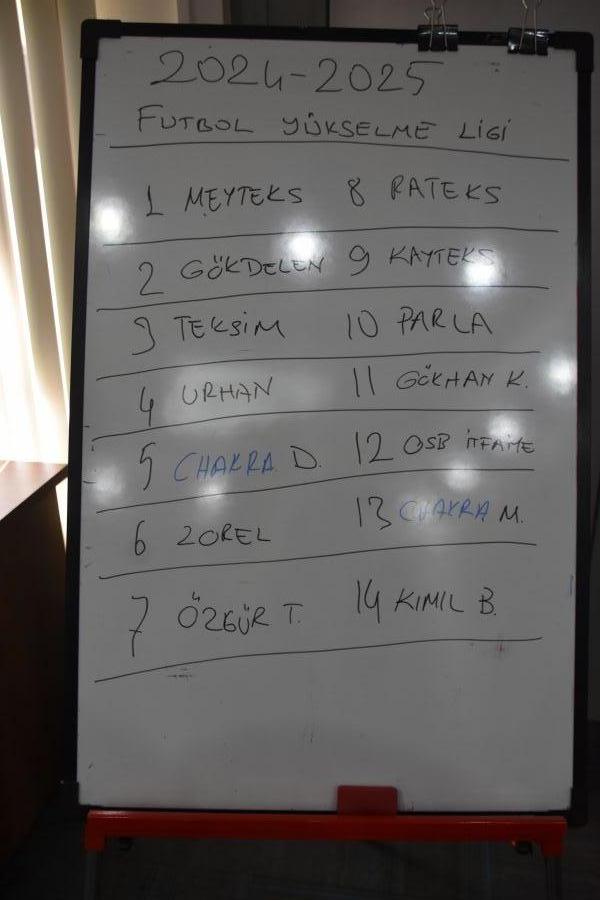 2024-2025
FUTBOL YÜKSELME LİGİ
1 MEYTEKS 8 RATEKS
2 GÖKDELEN 9 KAYTEKS
3 TEKSİM 10 PARLA
4 URHAN 11 GÖKHAN K.
5 CHAKRA D. 12 OSB İTFAİYE
6 ZOREL 13 CHAKRA M.
7 ÖZGÜR T. 14 KIMIL B.